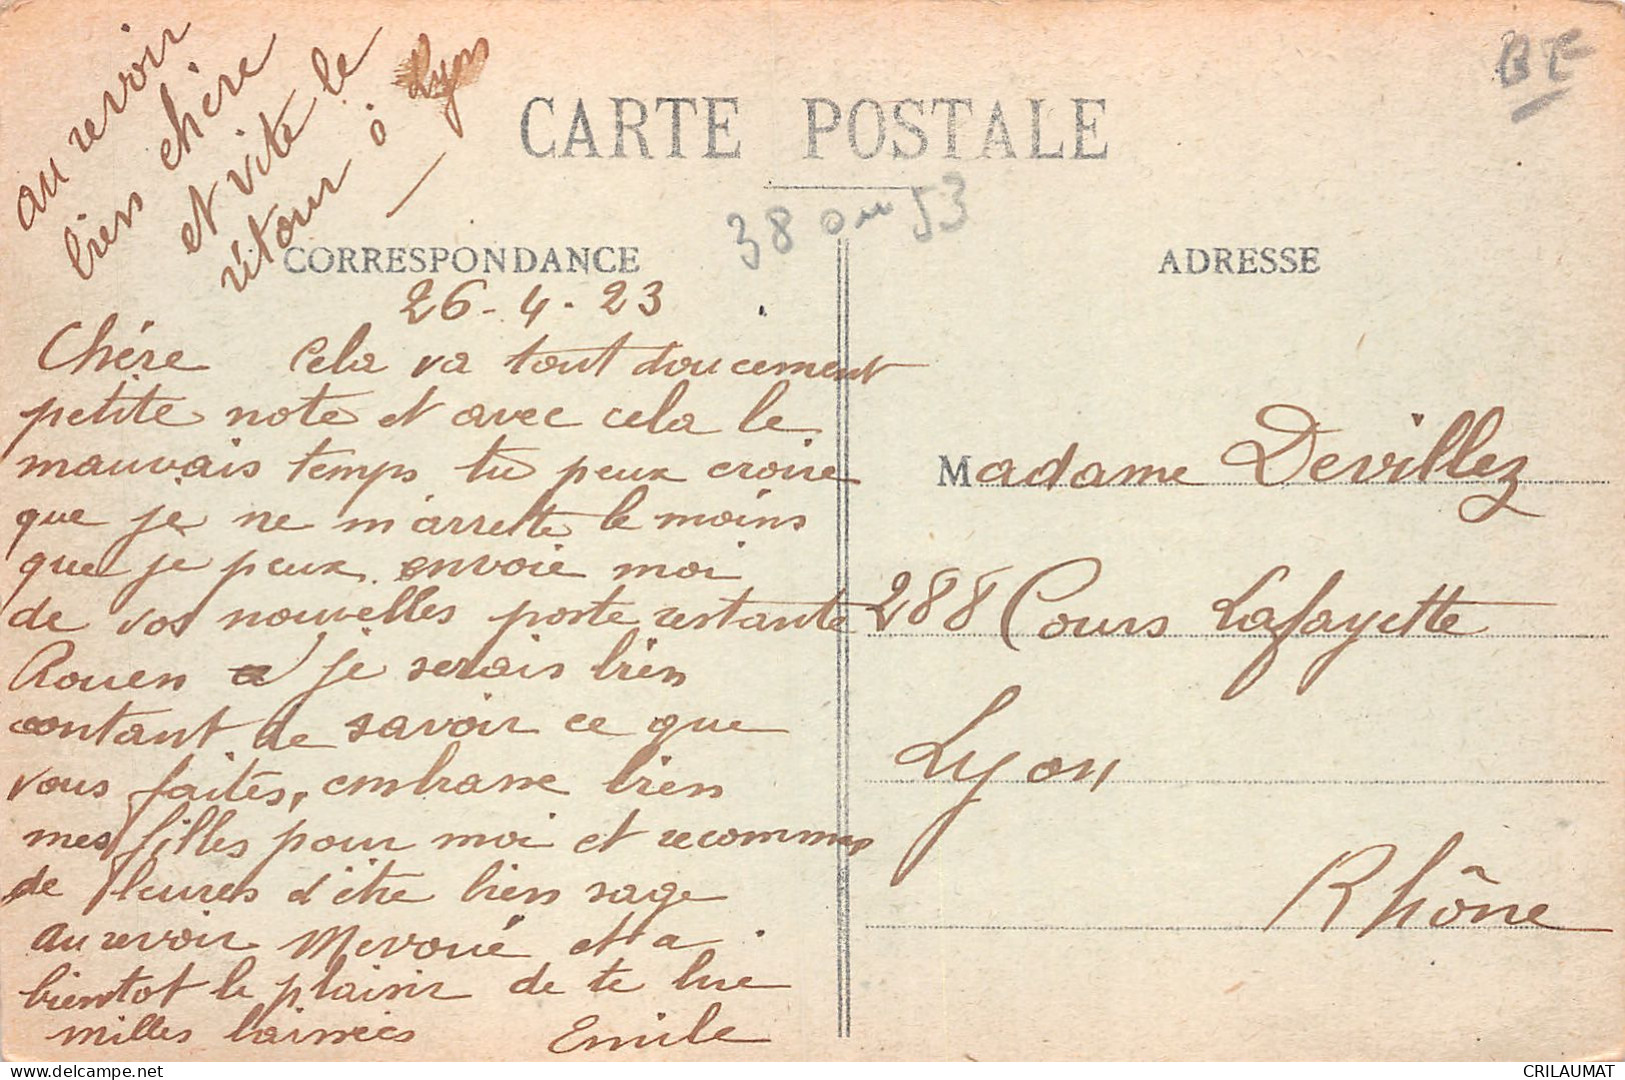 au revoir
bien chère
et vite le
rétour à Lyon
BE
CARTE POSTALE
38 ou 53
CORRESPONDANCE
ADRESSE
26-4-23
Chére Cela va tout doucement
petite note et avec cela le
mauvais temps tu peux croire
que je ne m'arrette le moins
que je peux. envoie moi
de vos nouvelles poste restante
Rouen je serais bien
contant de savoir ce que
vous faites, embrasse bien
mes filles pour moi et recomman
de leures d'être bien sage
au revoir et a
bientot le plaisir de te lire
milles baisées Emile
Madame Devillez
288 Cours Lafayette
Lyon
Rhône
CRILAUMAT
delcampe.net